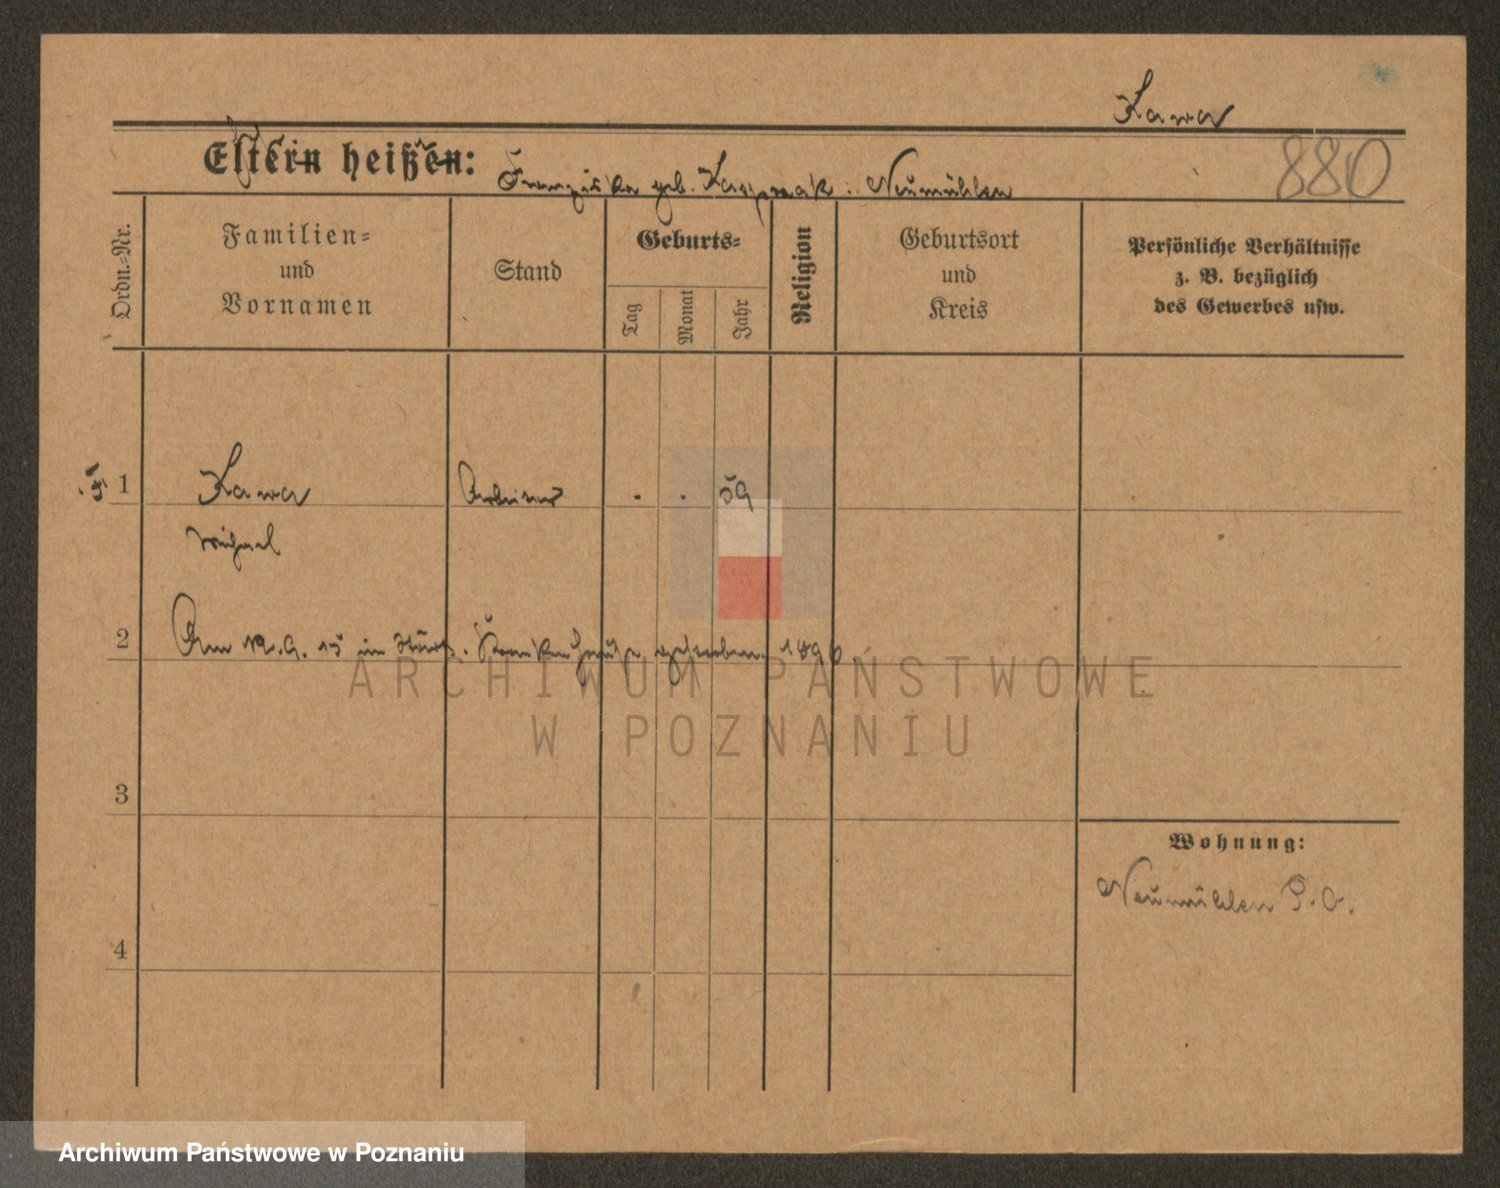 Kawa
Eltern heißen: Franziska geb. Kacpmak : Neumühlen
880
Ordn.-Nr.
Familien-
und
Vornamen
Stand
Geburts-
Tag
Monat
Jahr
Religion
Geburtsort
und
Kreis
Persönliche Verhältnisse
z. B. bezüglich
des Gewerbes usw.
1
Kawa
Arbeiter
. . 59
Michael
2
Am 12.9.15 im Stdt. Krankenhause gestorben. 1896
ARCHIWUM PAŃSTWOWE
W POZNANIU
3
Wohnung:
Neumühlen P. O.
4
Archiwum Państwowe w Poznaniu